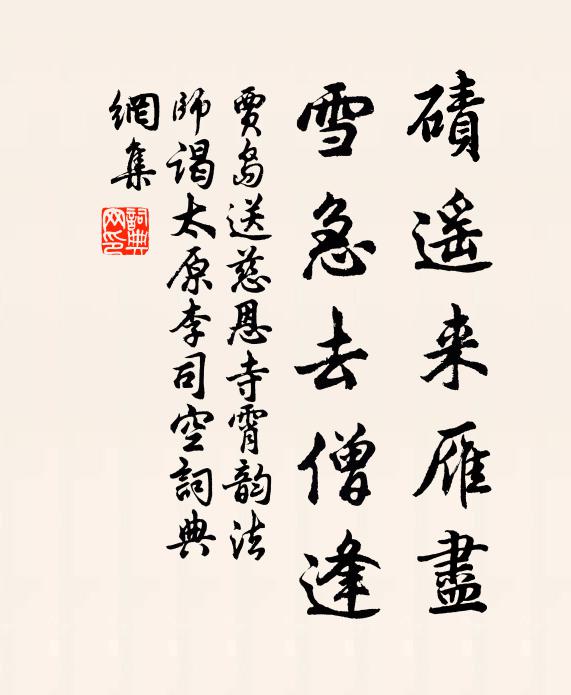 磧遥来雁盡
雪急去僧逢
賈島送慈恩寺霄韵法
師謁太原李司空詞典
網集
詞典
网印